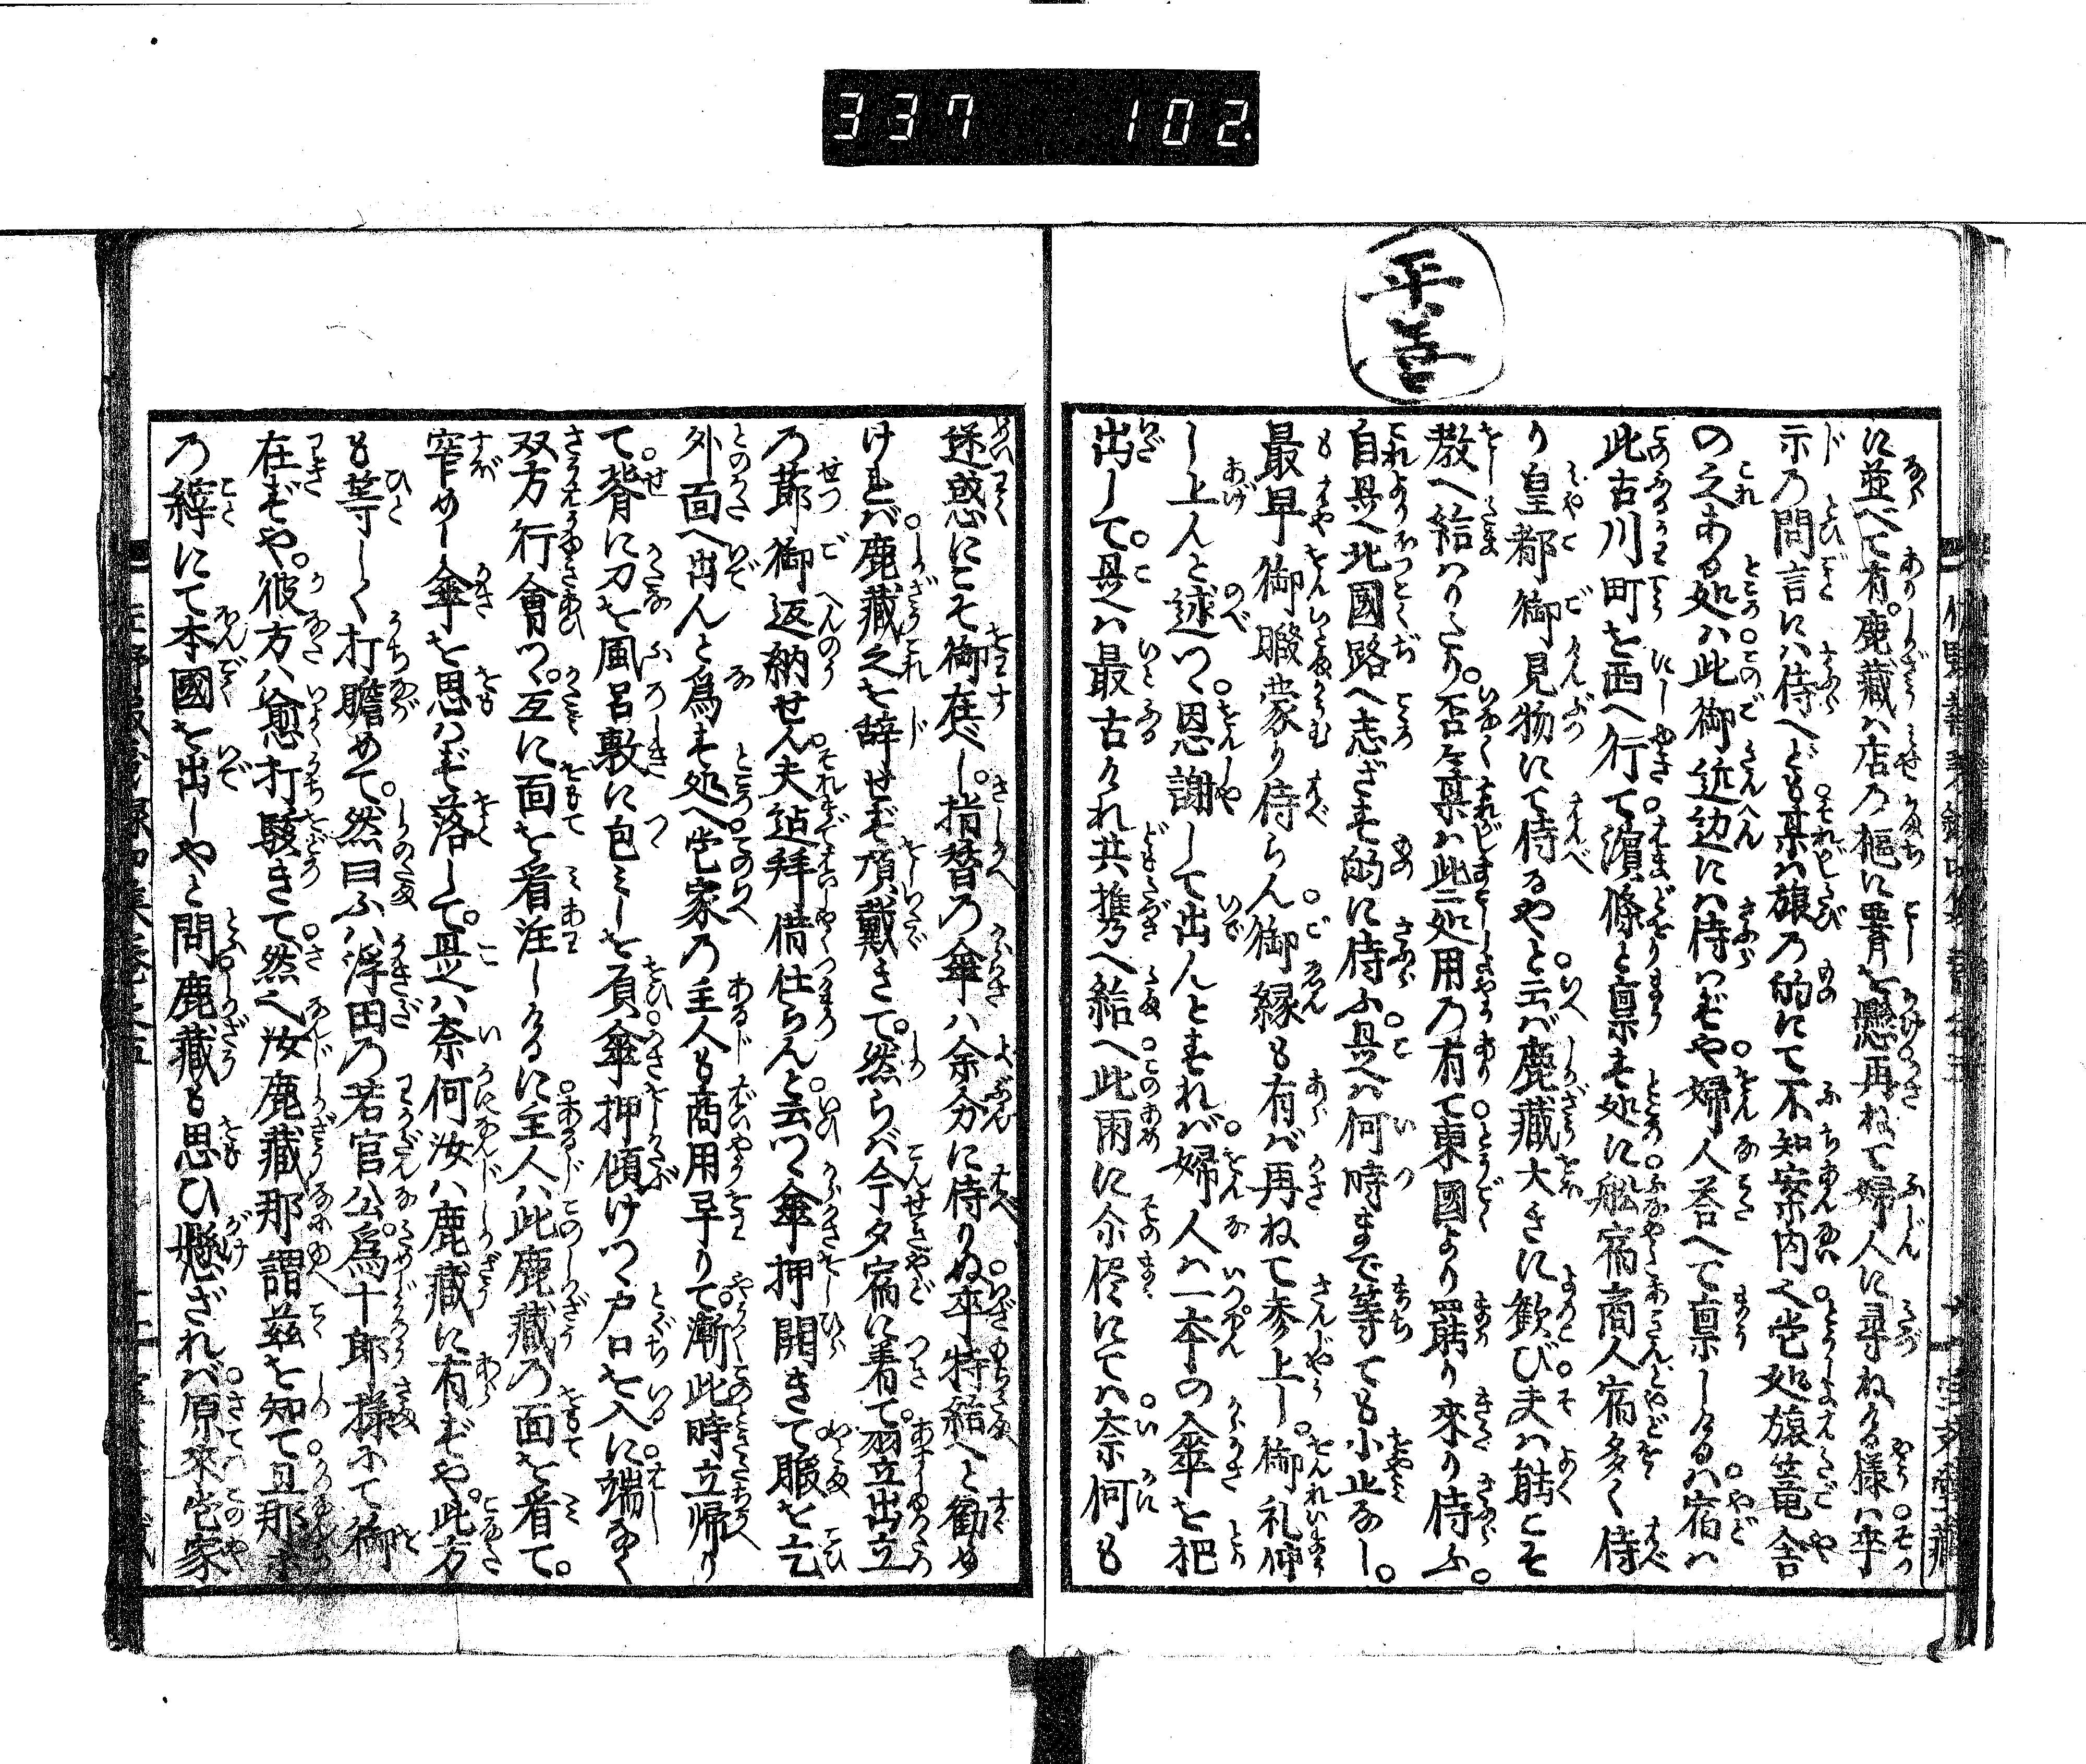 337 102.
平善
に並べて有。鹿藏ハ店乃框に臀を懸再ねて婦人に尋ねける様ハ卒
示乃問言にハ侍へども某ハ旅乃的にて不知案内之此処旅篭舎
の之ある処ハ此御近辺にハ侍はずや婦人荅へて禀しけるハ宿ハ
此古川町を西へ行て濵條と禀す処に舩宿商人宿多く侍
り皇都御見物にて侍るやと云ば鹿藏大きに歓び夫ハ能こそ
教へ給ハりたり。否々某ハ此二処用乃有て東國より罷り來り侍ふ。
自是北國路へ志ざす的に侍ふ是ハ何時まで等ても小止なし。
最早御暇蒙り侍らん御縁も有ば再ねて参上し。御礼伸
し上んと述つゝ恩謝して出んとすれば婦人ハ一本の傘を把
出して。是ハ最古けれ共携へ給へ此雨に尒侭にてハ奈何も
迷惑にこそ御在べし。指替乃傘ハ余分に侍りぬ卒持給へと勧め
けれバ鹿藏之を辞せず頂戴きて。然らば今夕宿に着て。翌立出立
乃莭御返納せん夫迠拜借仕らんと云つゝ傘押開きて暇を乞
外面へ出んと為す処へ此家乃主人も商用早りて漸此時立帰り
て。背に刀を風呂敷に包ミしを負傘押傾けつゝ戸口を入に端なく
双方行會つ。互に面を看注しけるに主人ハ此鹿藏乃面を看て。
窄めし傘を思はず落して。是ハ奈何汝ハ鹿藏に有ずや。此方
も等しく打瞻めて。然曰ふハ浮田乃若官公。爲十郎様にて御
在ずや。彼方ハ愈打駭きて然云汝鹿藏那謂茲を知て且那
乃縡にて本國を出しやと問鹿藏も思ひ懸ざれば原來此家